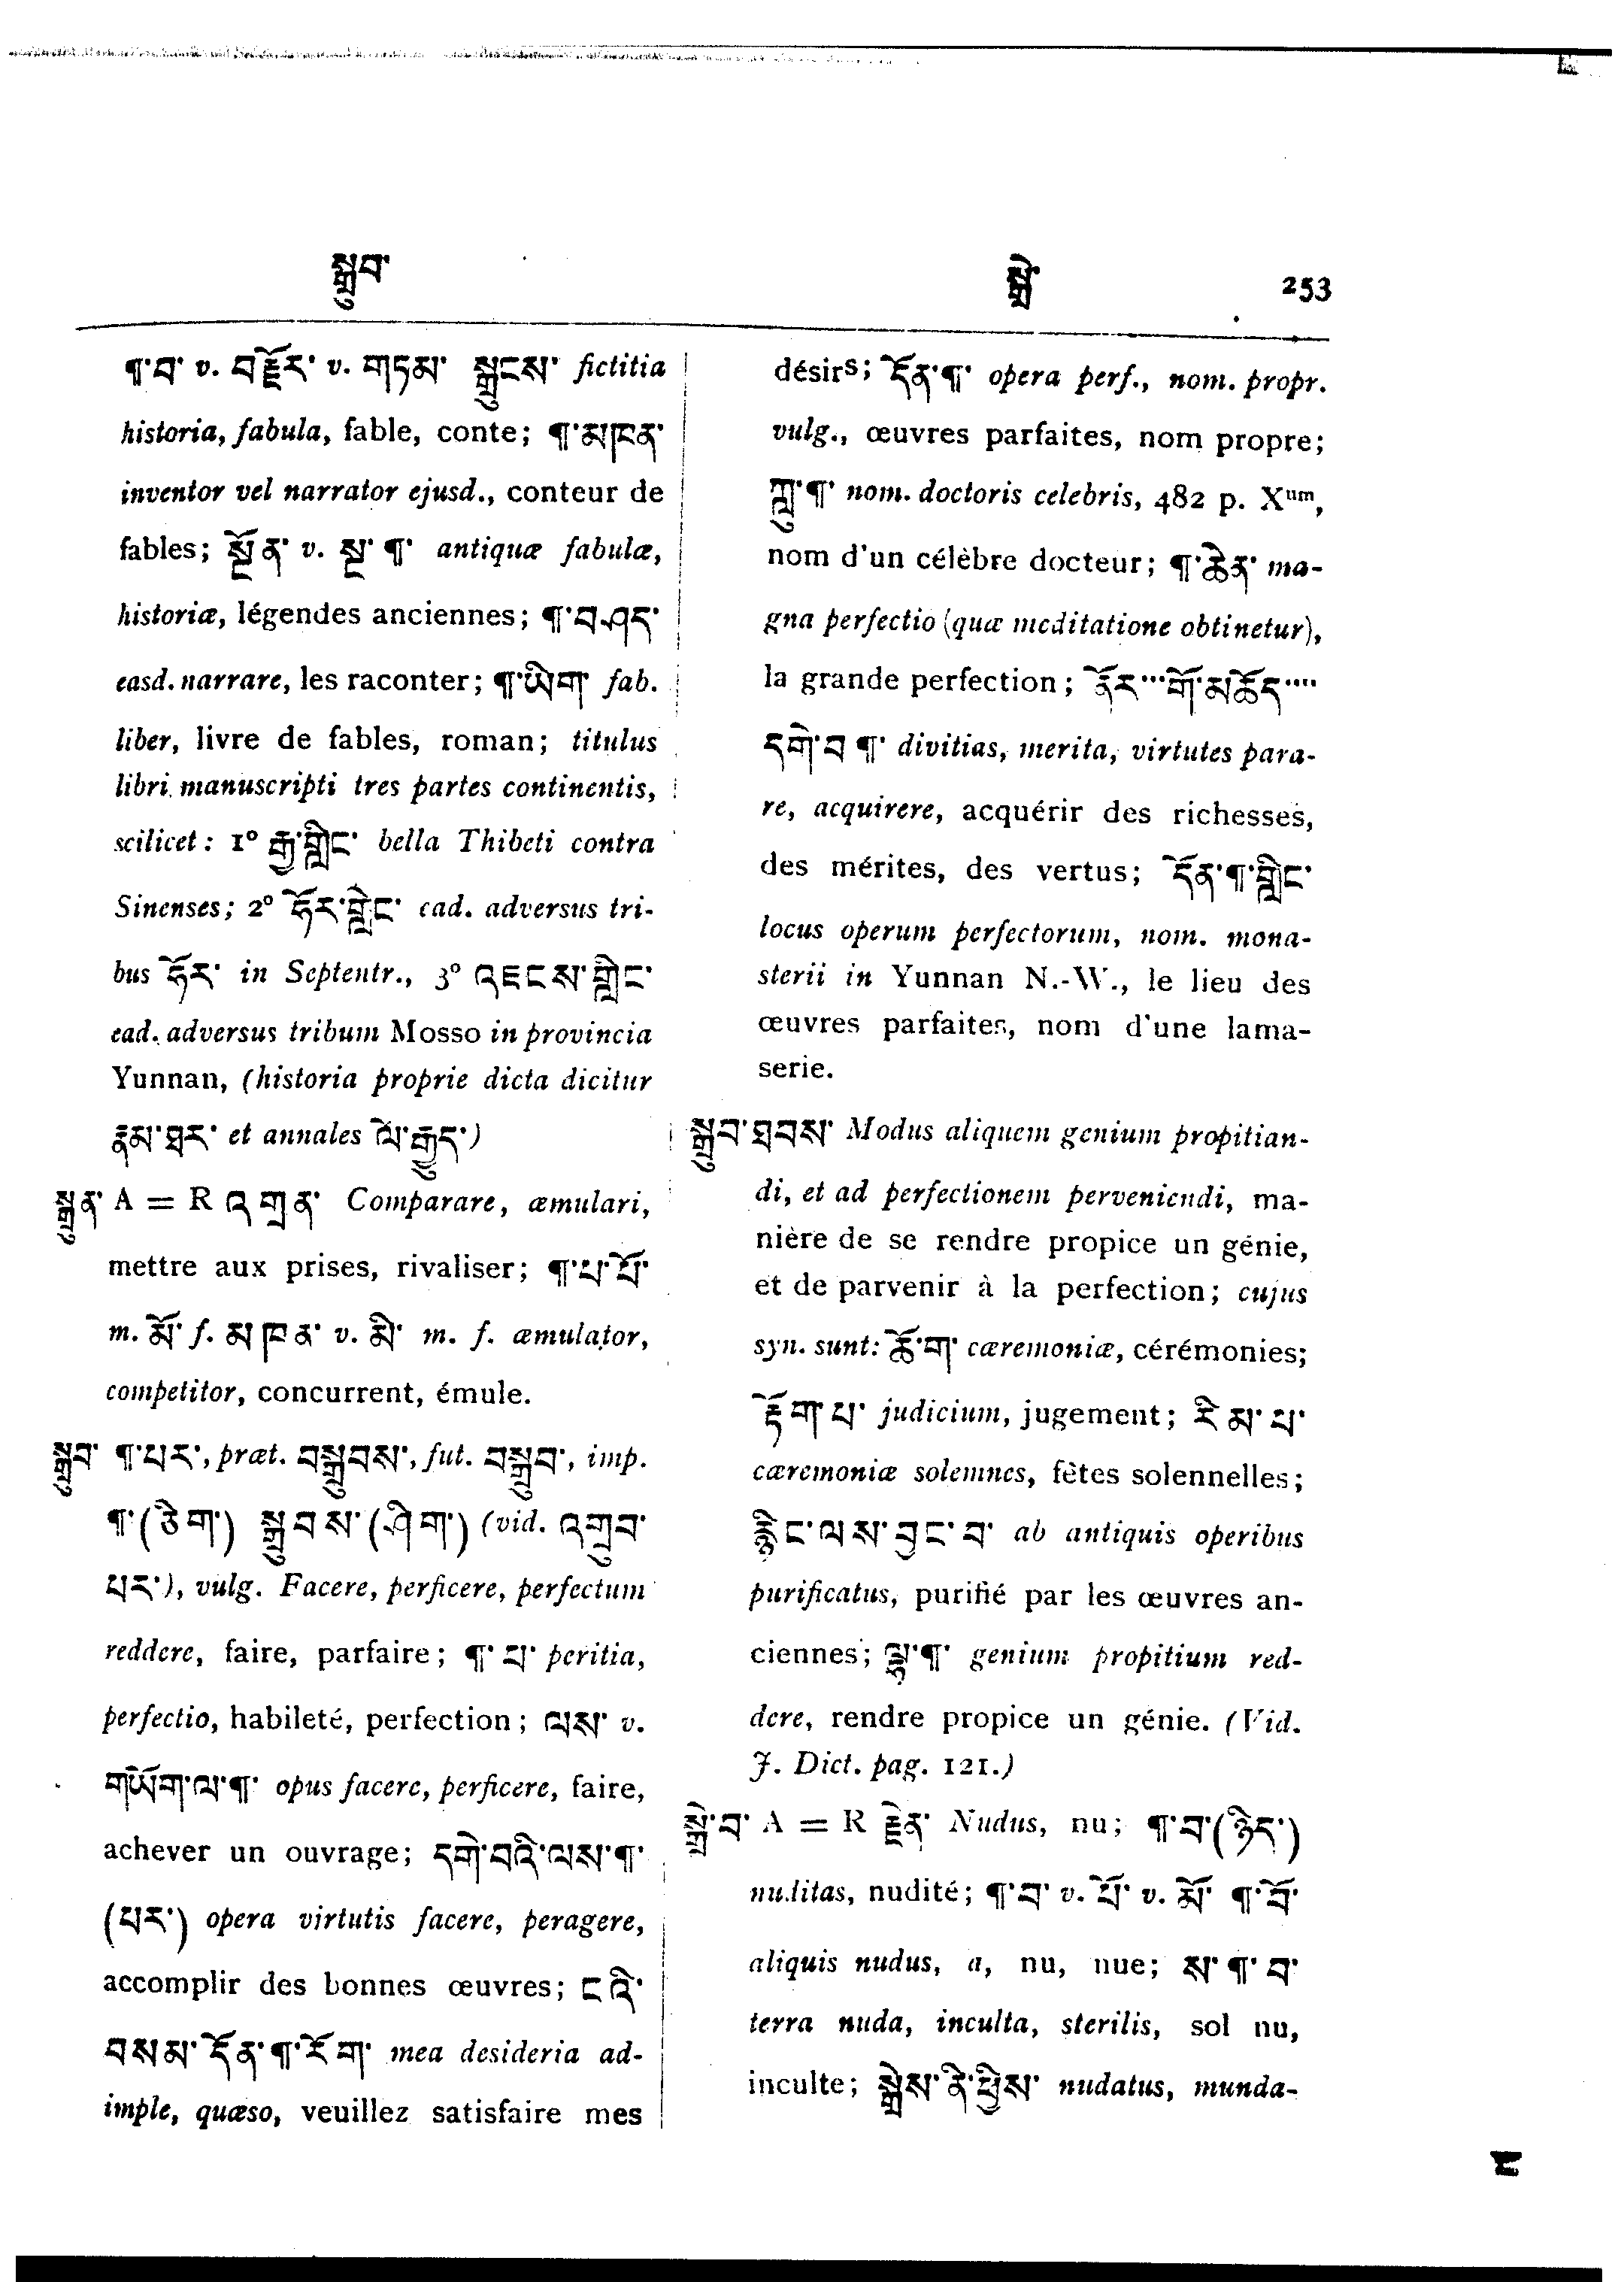 སྒྲུབ་
སྒྲེ་ 253
¶་བ་ v. བརྗོར་ v. གཏམ་ སྒྲུངས་ fictitia
historia, fabula, fable, conte; ¶་མཁན་
inventor vel narrator ejusd., conteur de
fables; སྔོན་ v. སྔ་ ¶་ antiquæ fabulæ,
historiæ, légendes anciennes; ¶་བཤད་
easd. narrare, les raconter; ¶་ཡིག་ fab.
liber, livre de fables, roman; titulus
libri manuscripti tres partes continentis,
scilicet: 1° རྒྱ་གླིང་ bella Thibeti contra
Sinenses; 2° ཧོར་གླིང་ ead. adversus tri-
bus ཧོར་ in Septentr., 3° འཇངས་གླིང་
ead. adversus tribum Mosso in provincia
Yunnan, (historia proprie dicta dicitur
རྣམ་ཐར་ et annales ལོ་རྒྱུད་)
སྒྲུན་ A = R འགྲན་ Comparare, æmulari,
mettre aux prises, rivaliser; ¶་པ་པོ་
m. མོ་ f. མཁན་ v. མི་ m. f. æmulator,
competitor, concurrent, émule.
སྒྲུབ་ ¶་པར་, præt. བསྒྲུབས་, fut. བསྒྲུབ་, imp.
¶་(ཅིག་) སྒྲུབས་(ཤིག་) (vid. འགྲུབ་
པར་), vulg. Facere, perficere, perfectum
reddere, faire, parfaire; ¶་ པ་ peritia,
perfectio, habileté, perfection; ལས་ v.
གཡོག་ལ་¶་ opus facere, perficere, faire,
achever un ouvrage; དགེ་བའི་ལས་¶་
(པར་) opera virtutis facere, peragere,
accomplir des bonnes œuvres; ངའི་
བསམ་དོན་¶་རོག་ mea desideria ad-
imple, quæso, veuillez satisfaire mes
désirs; དོན་¶་ opera perf., nom. propr.
vulg., œuvres parfaites, nom propre;
ཀླུ་¶་ nom. doctoris celebris, 482 p. Xum,
nom d'un célèbre docteur; ¶་ཆེན་ ma-
gna perfectio (quæ meditatione obtinetur),
la grande perfection; ནོར་···གོ་མཆོད····
དགེ་བ ¶་ divitias, merita, virtutes para-
re, acquirere, acquérir des richesses,
des mérites, des vertus; དོན་¶་གླིང་
locus operum perfectorum, nom. mona-
sterii in Yunnan N.-W., le lieu des
œuvres parfaites, nom d'une lama-
serie.
སྒྲུབ་ཐབས་ Modus aliquem genium propitian-
di, et ad perfectionem perveniendi, ma-
nière de se rendre propice un génie,
et de parvenir à la perfection; cujus
syn. sunt: ཆོ་ག་ cæremoniæ, cérémonies;
རྟོག་པ་ judicium, jugement; རིམ་པ་
cæremoniæ solemnes, fêtes solennelles;
རྙིང་ལས་བྱང་བ་ ab antiquis operibus
purificatus, purifié par les œuvres an-
ciennes; ལྷ་¶་ genium propitium red-
dere, rendre propice un génie. (Vid.
J. Dict. pag. 121.)
སྒྲེ་བ་ A = R རྗེན་ Nudus, nu; ¶་བ་(ཉིད་)
nuditas, nudité; ¶་བ་ v. པོ་ v. མོ་ ¶་བོ་
aliquis nudus, a, nu, nue; ས་¶་བ་
terra nuda, inculta, sterilis, sol nu,
inculte; སྒྲེས་ནི་ཕྱིས་ nudatus, munda-